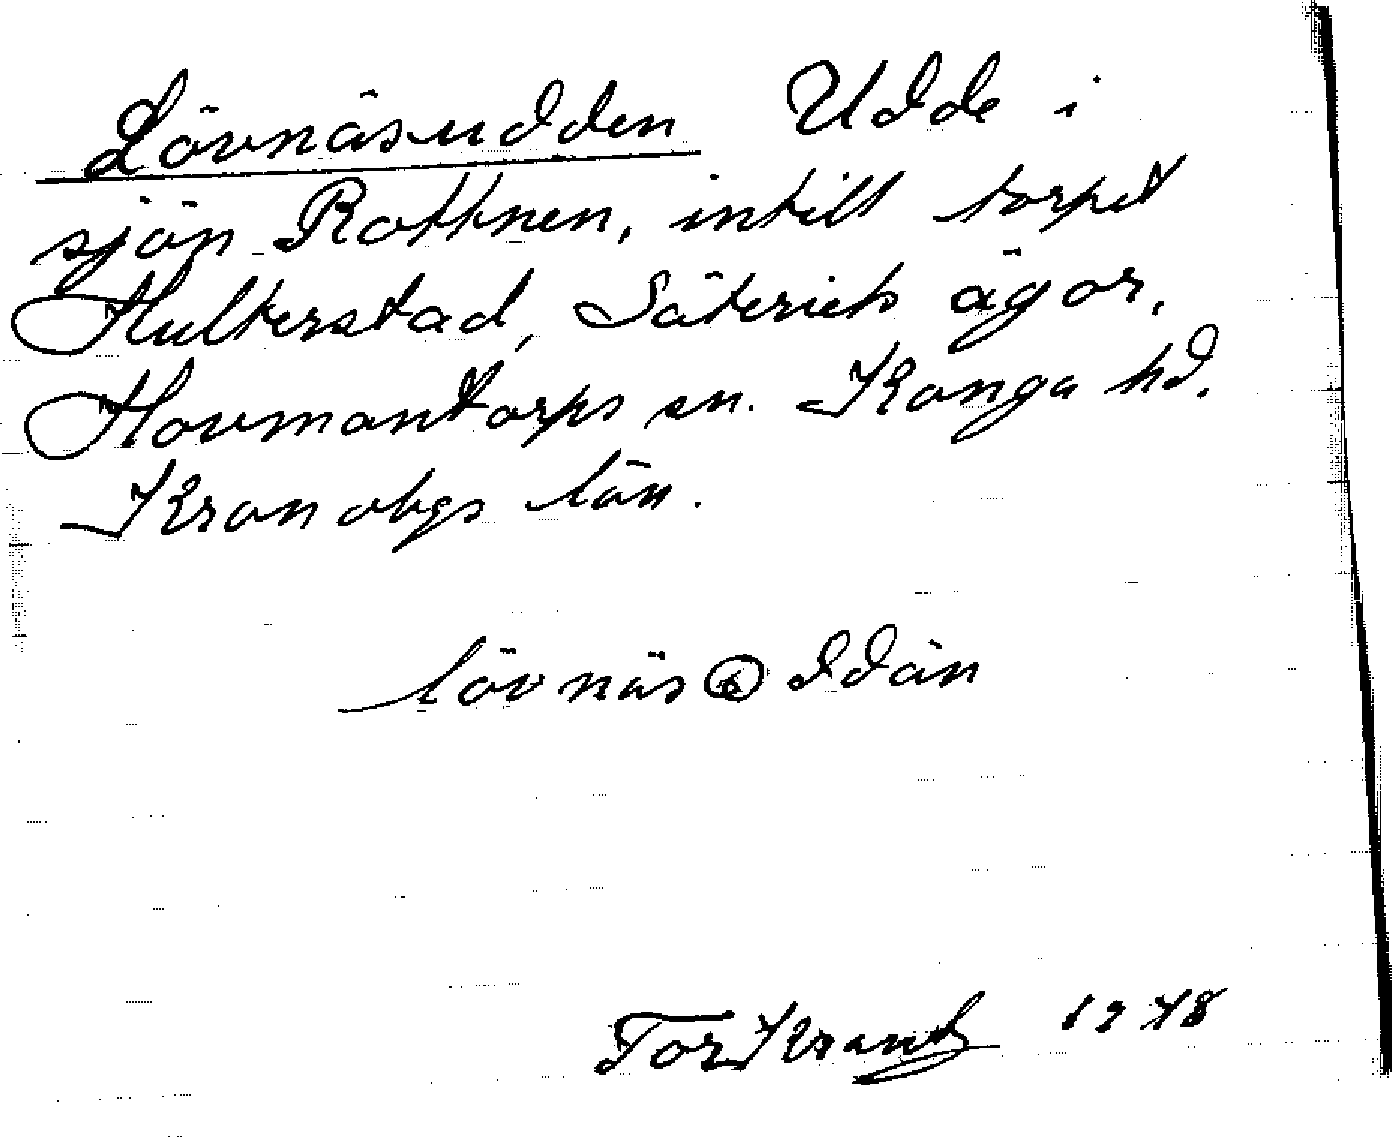 Lövnäsudden Udde i
sjön Rottnen, intill torpet
Hulterstad, Säteriets ägor,
Hovmantorps sn. Konga hd.
Kronobgs län.
lövnäs ddän
Tor Krantz 1978